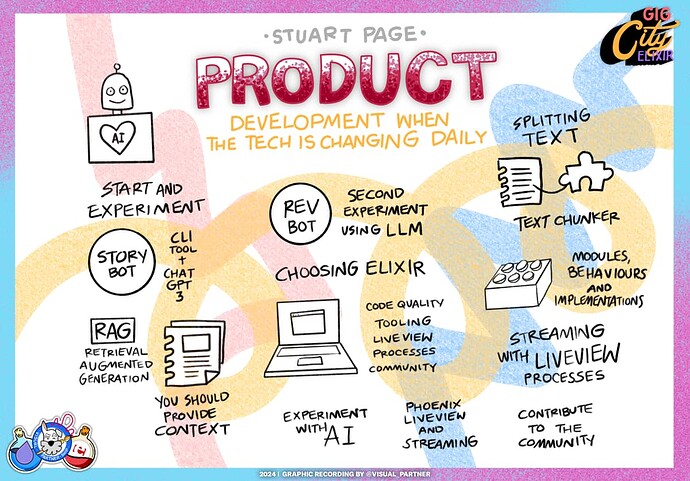 •STUART PAGE•
PRODUCT
DEVELOPMENT WHEN
THE TECH IS CHANGING DAILY
GIG
City
ELIXIR
AI
START AND
EXPERIMENT
STORY
BOT
CLI
TOOL
+
CHAT
GPT
3
RAG
RETRIEVAL
AUGMENTED
GENERATION
YOU SHOULD
PROVIDE
CONTEXT
REV
BOT
SECOND
EXPERIMENT
USING LLM
CHOOSING ELIXIR
CODE QUALITY
TOOLING
LIVEVIEW
PROCESSES
COMMUNITY
EXPERIMENT
WITH AI
PHOENIX
LIVEVIEW
AND
STREAMING
SPLITTING
TEXT
TEXT CHUNKER
MODULES,
BEHAVIOURS
AND
IMPLEMENTATIONS
STREAMING
WITH LIVEVIEW
PROCESSES
CONTRIBUTE
TO THE
COMMUNITY
2024 | GRAPHIC RECORDING BY @VISUAL_PARTNER